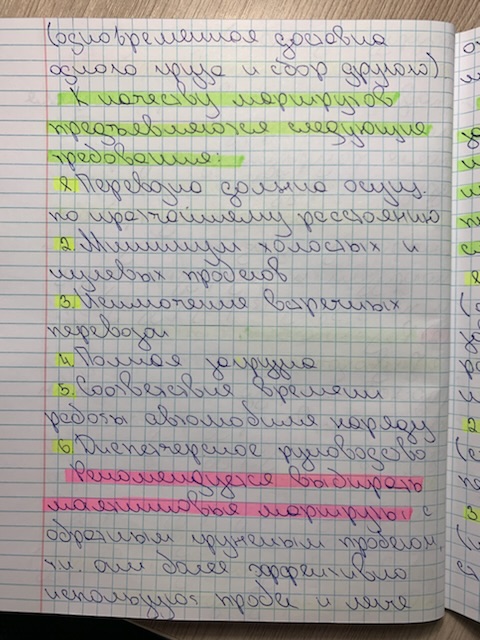 (одновременная доставка
одного груза и сбор другого)
К качеству маршрутов
предъявляются следующие
требования:
1. Перевозка должна осущ.
по кратчайшему расстоянию
2. Минимум холостых и
нулевых пробегов
3. Исключения встречных
перевозок
4. Полная загрузка
5. Соответствия времени
работы автомобиля наряду
6. Диспетчерское руководство
Рекомендуется выбирать
маятниковые маршруты с
обратным груженым пробегом,
т.к. они более эффективно
используют пробег и легче